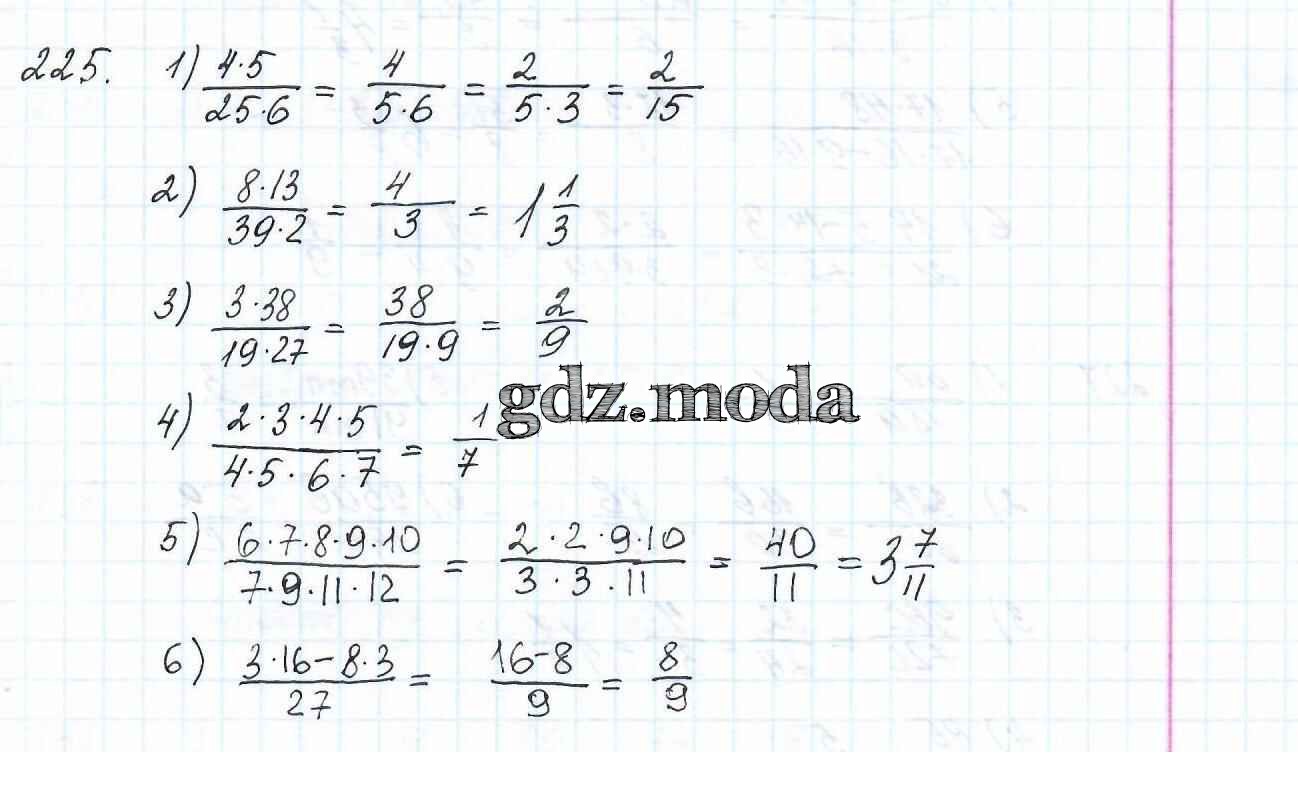 225. 1) 4·5/25·6 = 4/5·6 = 2/5·3 = 2/15
2) 8·13/39·2 = 4/3 = 1 1/3
3) 3·38/19·27 = 38/19·9 = 2/9
gdz.moda
4) 2·3·4·5/4·5·6·7 = 1/7
5) 6·7·8·9·10/7·9·11·12 = 2·2·9·10/3·3·11 = 40/11 = 3 7/11
6) 3·16-8·3/27 = 16-8/9 = 8/9